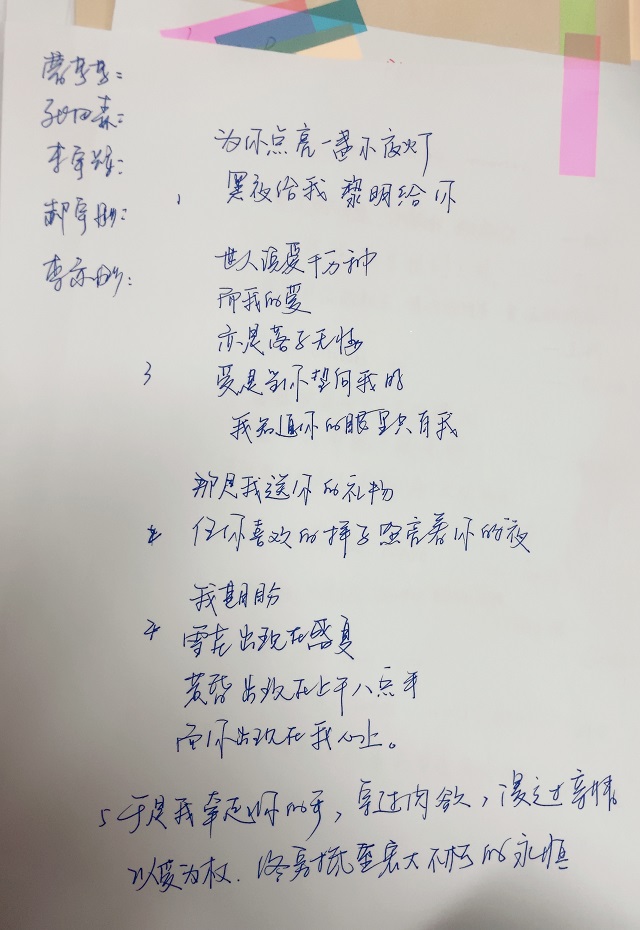 为你点亮一盏不夜灯
1 黑夜给我 黎明给你
世人说爱千万种
而我的爱
亦是落子无悔
3 爱是当你望向我时
我知道你的眼里只有我
那是我送你的礼物
以你喜欢的样子照亮着你的夜
我期盼
4 雪花出现在盛夏
黄昏出现在上午八点半
而你出现在我心上。
5 于是我牵起你的手，穿过肉欲，漫过亲情
以爱为权. 终究抵至宏大不朽的永恒